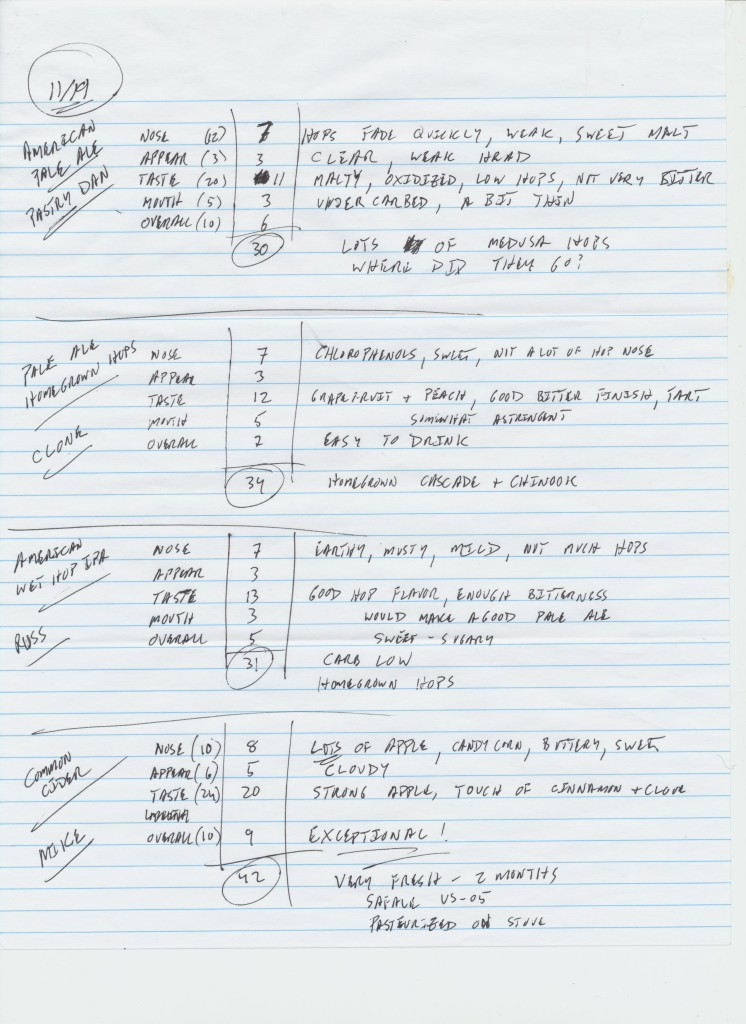 11/19
AMERICAN PALE ALE
PASTRY DAN
NOSE (12) 7 HOPS FADE QUICKLY, WEAK, SWEET MALT
APPEAR (3) 3 CLEAR, WEAK HEAD
TASTE (20) 11 MALTY, OXIDIZED, LOW HOPS, NOT VERY BITTER
MOUTH (5) 3 UNDER CARBED, A BIT THIN
OVERALL (10) 6
30 LOTS OF MEDUSA HOPS
WHERE DID THEY GO?
PALE ALE
HOMEGROWN HOPS
CLONE
NOSE 7 CHLOROPHENOLS, SWEET, NOT A LOT OF HOP NOSE
APPEAR 3
TASTE 12 GRAPEFRUIT + PEACH, GOOD BITTER FINISH, TART
MOUTH 5 SOMEWHAT ASTRINGENT
OVERALL 7 EASY TO DRINK
34 HOMEGROWN CASCADE + CHINOOK
AMERICAN
WET HOP IPA
RUSS
NOSE 7 EARTHY, MUSTY, MILD, NOT MUCH HOPS
APPEAR 3
TASTE 13 GOOD HOP FLAVOR, ENOUGH BITTERNESS
MOUTH 3 WOULD MAKE A GOOD PALE ALE
OVERALL 5 SWEET - SUGARY
31 CARB LOW
HOMEGROWN HOPS
COMMON
CIDER
MIKE
NOSE (10) 8 LOTS OF APPLE, CANDY CORN, BUTTERY, SWEET
APPEAR (6) 5 CLOUDY
TASTE (24) 20 STRONG APPLE, TOUCH OF CINNAMON + CLOVE
OVERALL (10) 9 EXCEPTIONAL!
42 VERY FRESH - 2 MONTHS
SAFALE US-05
PASTEURIZED ON STOVE